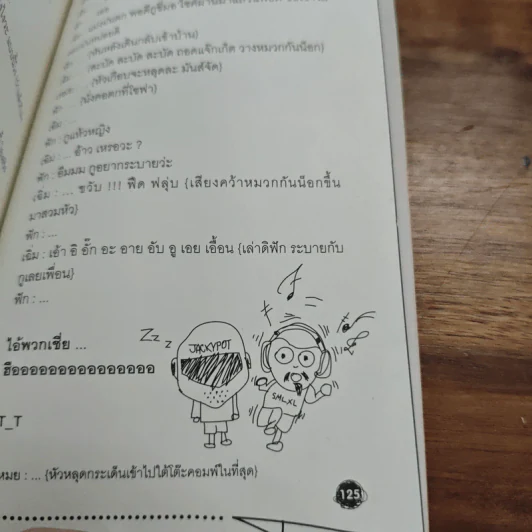 (หันหลังเดินกลับเข้าบ้าน)
สะบัด สะบัด สะบัด ถอดแจ๊กเก็ต วางหมวกกันน็อก)
(หัวเกือบจะหลุดละ มันส์จัด)
(นั่งคอตกที่โซฟา)
กูแห้วหญิง
... อ้าว เหรอวะ ?
ฟัก : อืมมม กูอยากระบายว่ะ
เฉิ่ม : ... ขวับ !!! ฟืด ฟลุ่บ {เสียงคว้าหมวกกันน็อกขึ้น
มาสวมหัว}
ฟัก : ...
เฉิ่ม : เอ้า อิ อั๊ก อะ อาย อับ อู เอย เอื้อน {เล่าดิฟัก ระบายกับ
กูเลยเพื่อน}
ฟัก : ...
ไอ้พวกเชี่ย ...
ฮือออออออออออออออออ
T_T
Zz z
JACKYPOT
SML,XL
หมย : ... {หัวหลุดกระเด็นเข้าไปใต้โต๊ะคอมพ์ในที่สุด}
125